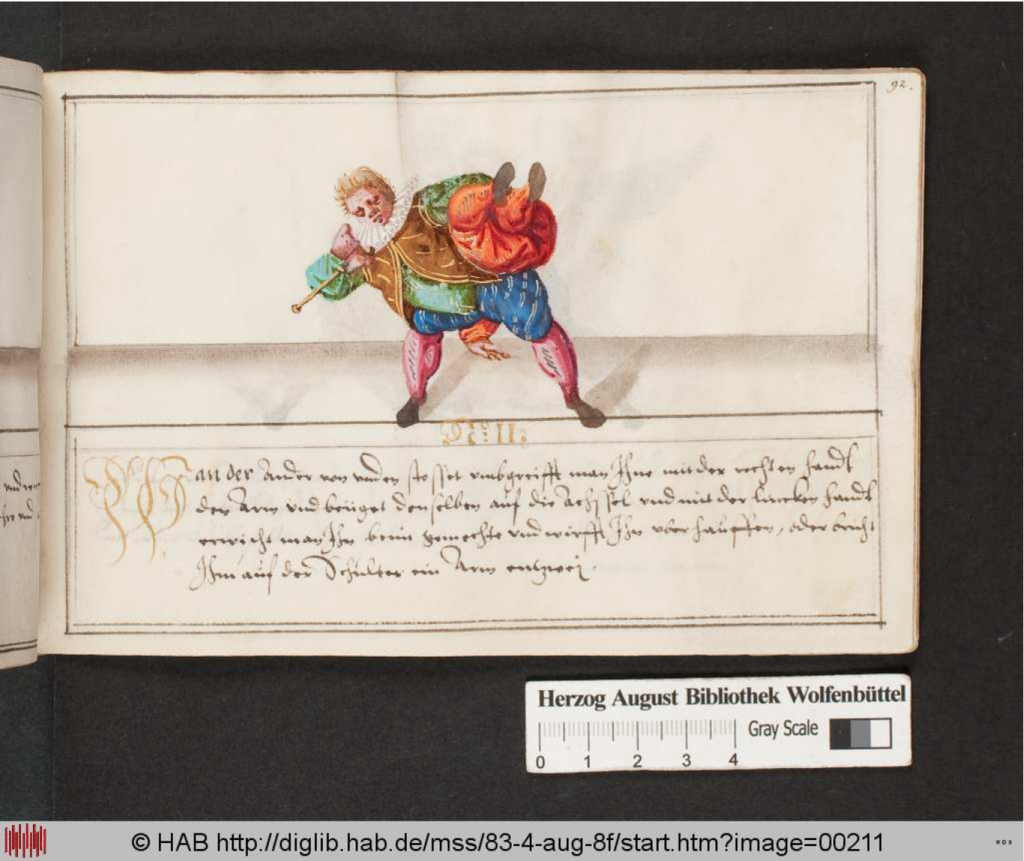 92.
: II :
Wan der Ander von unden stosset umbgreifft man Ihne mit der rechten handt
den Arm und beüget denselben auf die Achssel und mit der lincken handt
erwischt man Ihn beim gemechte und wirfft Ihn uber hauffen, oder bricht
Ihm auf der Schulter ein Arm entzwei.
Herzog August Bibliothek Wolfenbüttel
Gray Scale
0 1 2 3 4
© HAB http://diglib.hab.de/mss/83-4-aug-8f/start.htm?image=00211